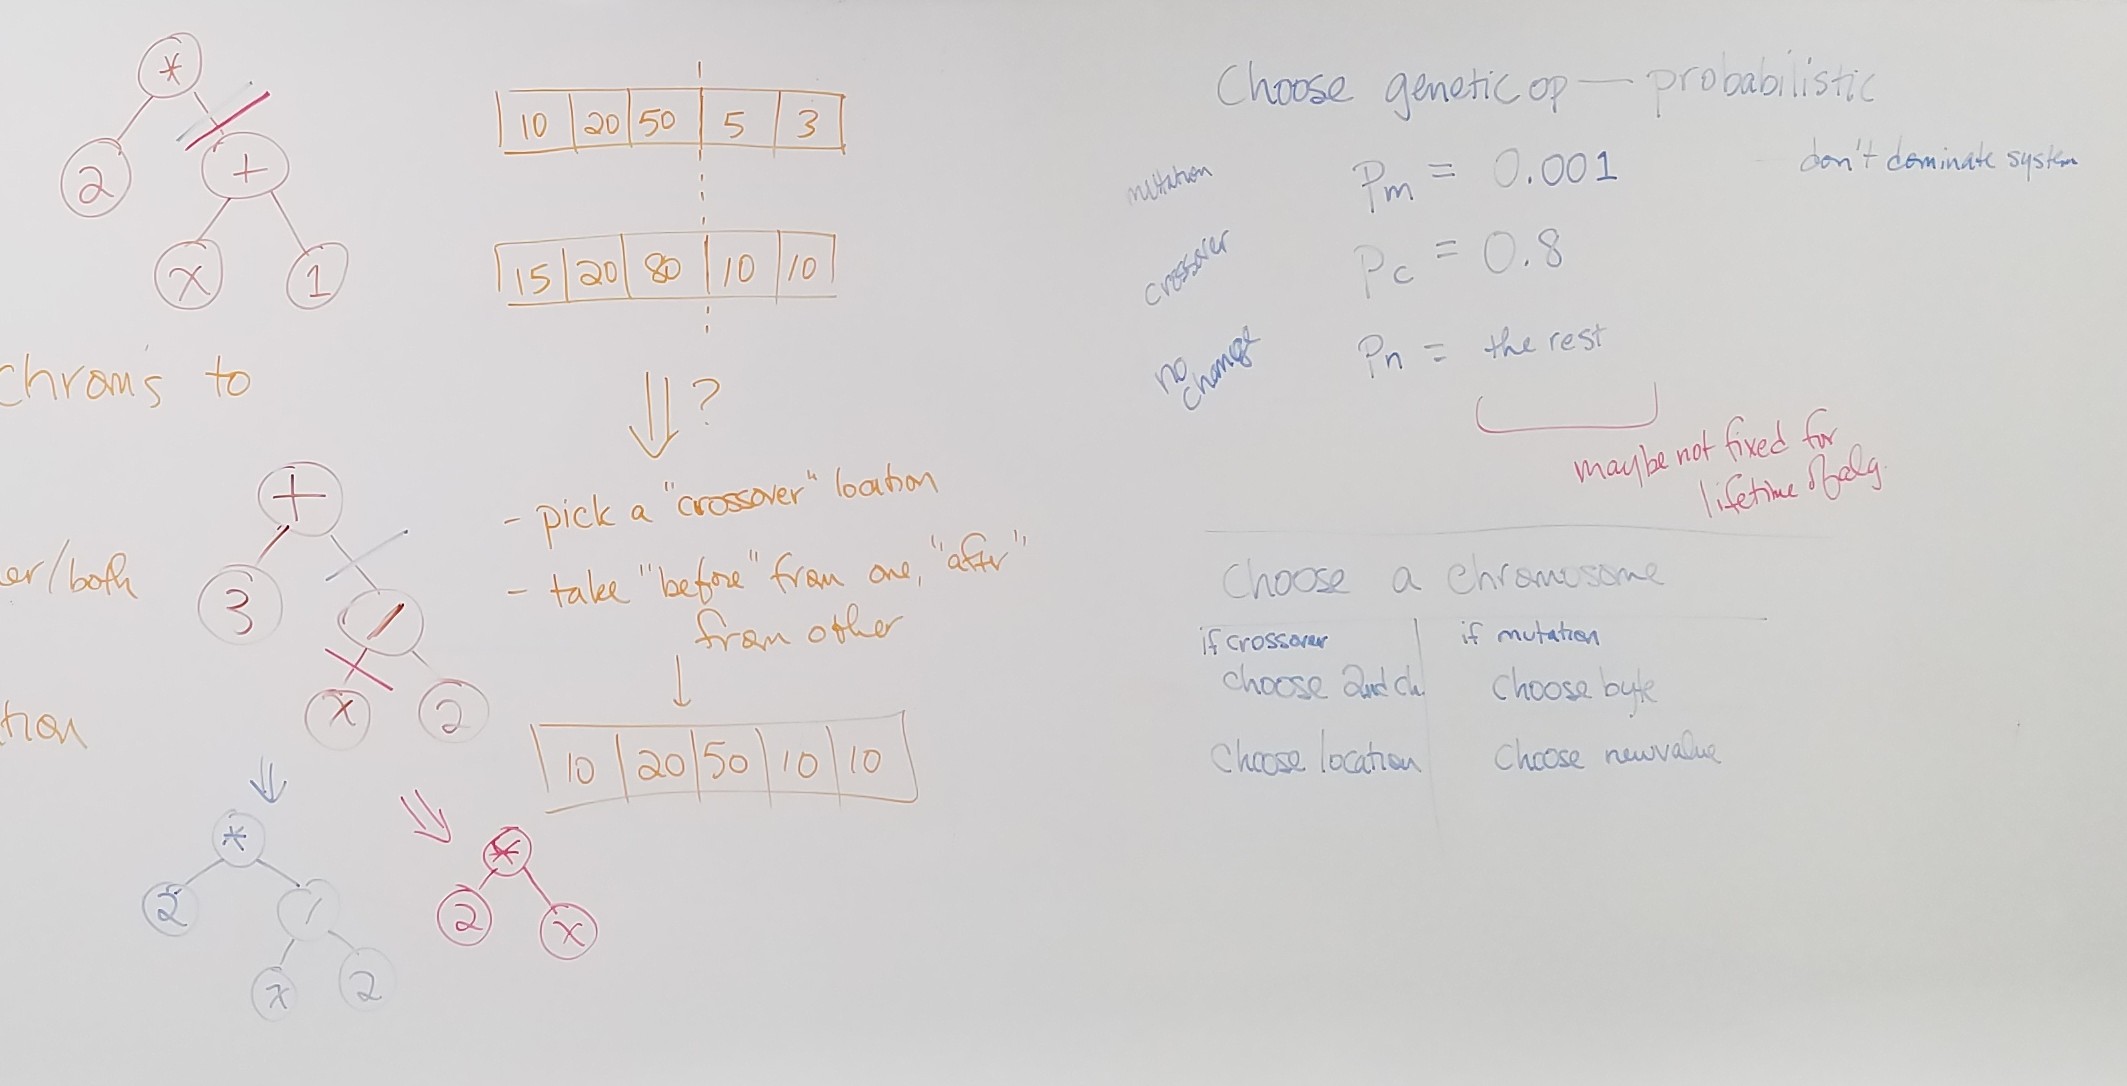 *
2
+
x
1
chrom's to
+
er/both
3
/
x
2
tion
*
2
/
x
2
*
2
x
10 20 50 5 3
15 20 80 10 10
?
- pick a "crossover" location
- take "before" from one, "after"
from other
10 20 50 10 10
Choose genetic op — probabilistic
mutation Pm = 0.001 don't dominate system
crossover Pc = 0.8
no change Pn = the rest
maybe not fixed for
lifetime of alg.
Choose a chromosome
if crossover
choose 2nd ch.
Choose location
if mutation
Choose byte
Choose new value